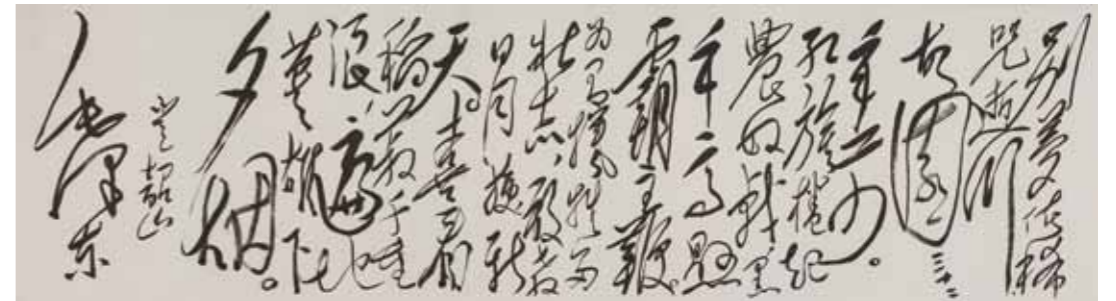 别夢依稀
咒逝川
故園三十二
年前。
红旗捲起
農奴戟黑
手高悬
霸主鞭
为有犧牲多
壮志,敢教
日月换新
天。喜看
稻菽千重
浪,遍地
英雄下
夕烟。
韶山
毛泽东